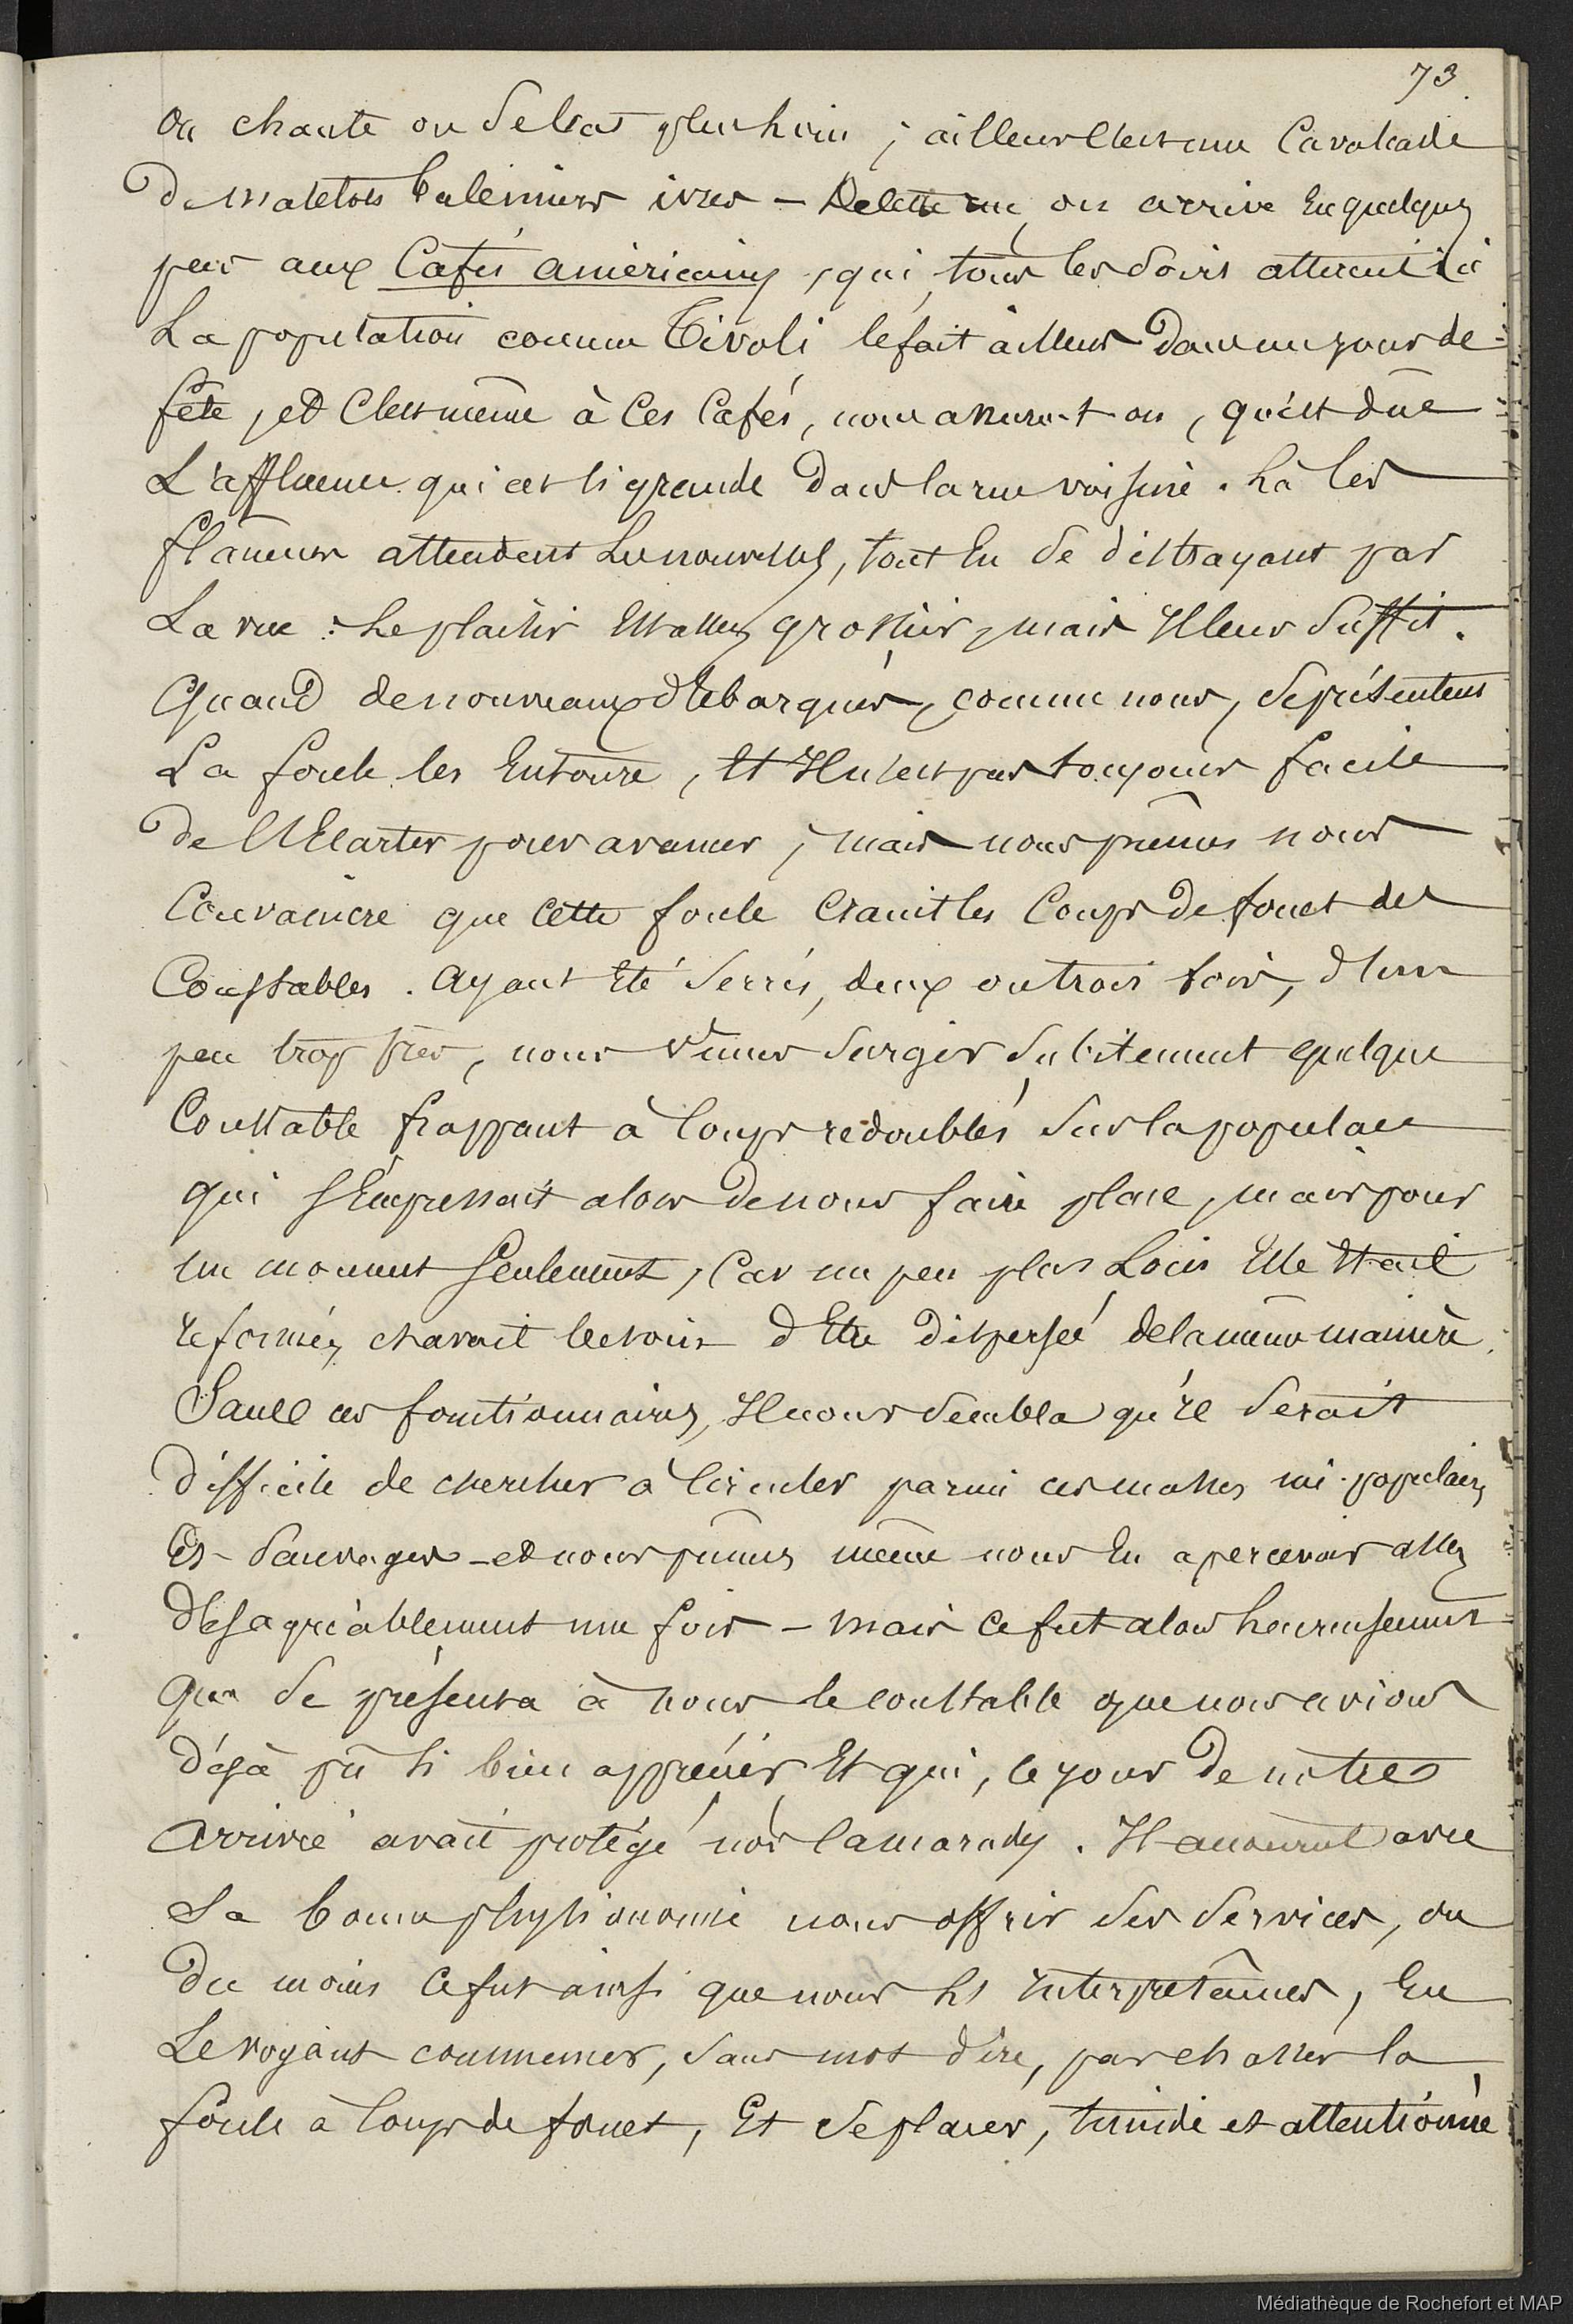 73.
on chante on se bat plus loin ; ailleurs c'est une Cavalcade
de matelots baleiniers ivres — De cette rue, on arrive en quelques
pas aux Cafés américains, qui, tous les soirs attirent ici
La population comme Tivoli le fait ailleurs dans un jour de
fête, et c'est même à ces Cafés, nous assura-t-on, qu'est dûe
L'affluence qui est si grande dans la rue voisine. Là les
flâneurs attendent Les nouvelles, tout en se distrayant par
La vue : Le plaisir est assez grossier, mais il leur suffit.
Quand de nouveaux débarqués, comme nous, se présentent
La foule les entoure, et il n'est pas toujours facile
de l'écarter pour avancer ; mais nous pûmes nous
Convaincre que cette foule craint les coups de fouet des
Constables. Ayant été serrés, deux ou trois fois, d'un
peu trop près, nous vîmes surgir subitement quelque
Constable frappant à coups redoublés sur la populace
qui s'empressait alors de nous faire place, mais pour
un moment seulement, car un peu plus Loin elle était
reformée, et avait besoin d'être dispersée de la même manière.
Sans ces fonctionnaires, il nous sembla qu'il serait
difficile de chercher à circuler parmi ces masses mi-populaires
et sauvages — et nous pûmes même nous en apercevoir assez
désagréablement une fois — mais ce fut alors heureusement
que se présenta à nous le constable que nous avions
déjà pû si bien apprécier, et qui, le jour de notre
arrivée avait protégé nos camarades. Il accourut avec
Sa bonne physionomie nous offrir ses services, ou
du moins ce fut ainsi que nous les interprêtâmes, en
Le voyant commencer, sans mot dire, par chasser la
foule à coups de fouet, et se placer, timide et attentionné
Médiathèque de Rochefort et MAP